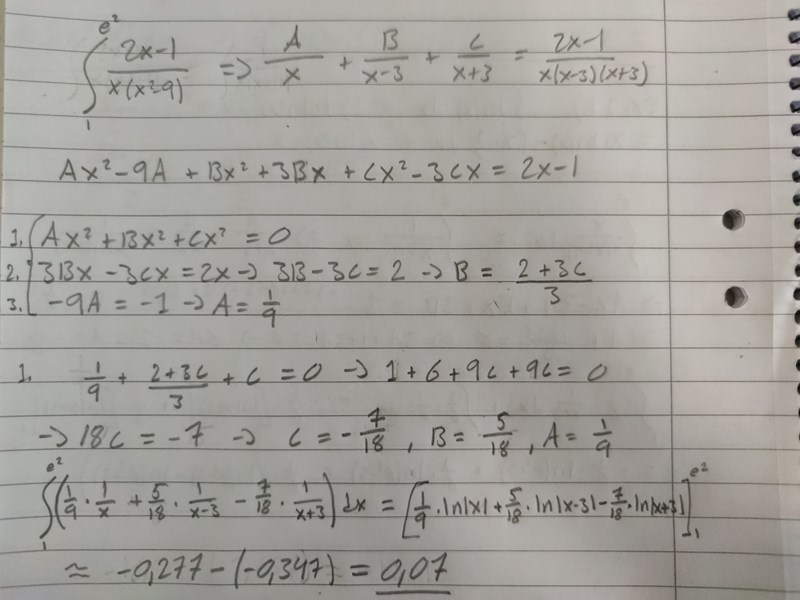 ∫₁^{e²} (2x-1)/(x(x²-9)) => A/x + B/(x-3) + C/(x+3) = (2x-1)/(x(x-3)(x+3))
Ax² - 9A + Bx² + 3Bx + Cx² - 3Cx = 2x-1
1. { Ax² + Bx² + Cx² = 0
2. { 3Bx - 3Cx = 2x -> 3B - 3C = 2 -> B = (2+3C)/3
3. { -9A = -1 -> A = 1/9
1. 1/9 + (2+3C)/3 + C = 0 -> 1+6+9C+9C = 0
-> 18C = -7 -> C = -7/18, B = 5/18, A = 1/9
∫₁^{e²} (1/9 · 1/x + 5/18 · 1/(x-3) - 7/18 · 1/(x+3)) dx = [1/9 · ln|x| + 5/18 · ln|x-3| - 7/18 · ln|x+3|]₁^{e²}
≈ -0,277 - (-0,347) = 0,07